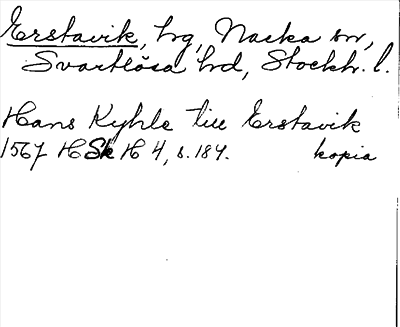 Erstavik, hg, Nacka sn,
Svartlösa hd, Stockh. l.
Hans Kyhle till Erstavik
1567 HSkH 4, s. 184. kopia